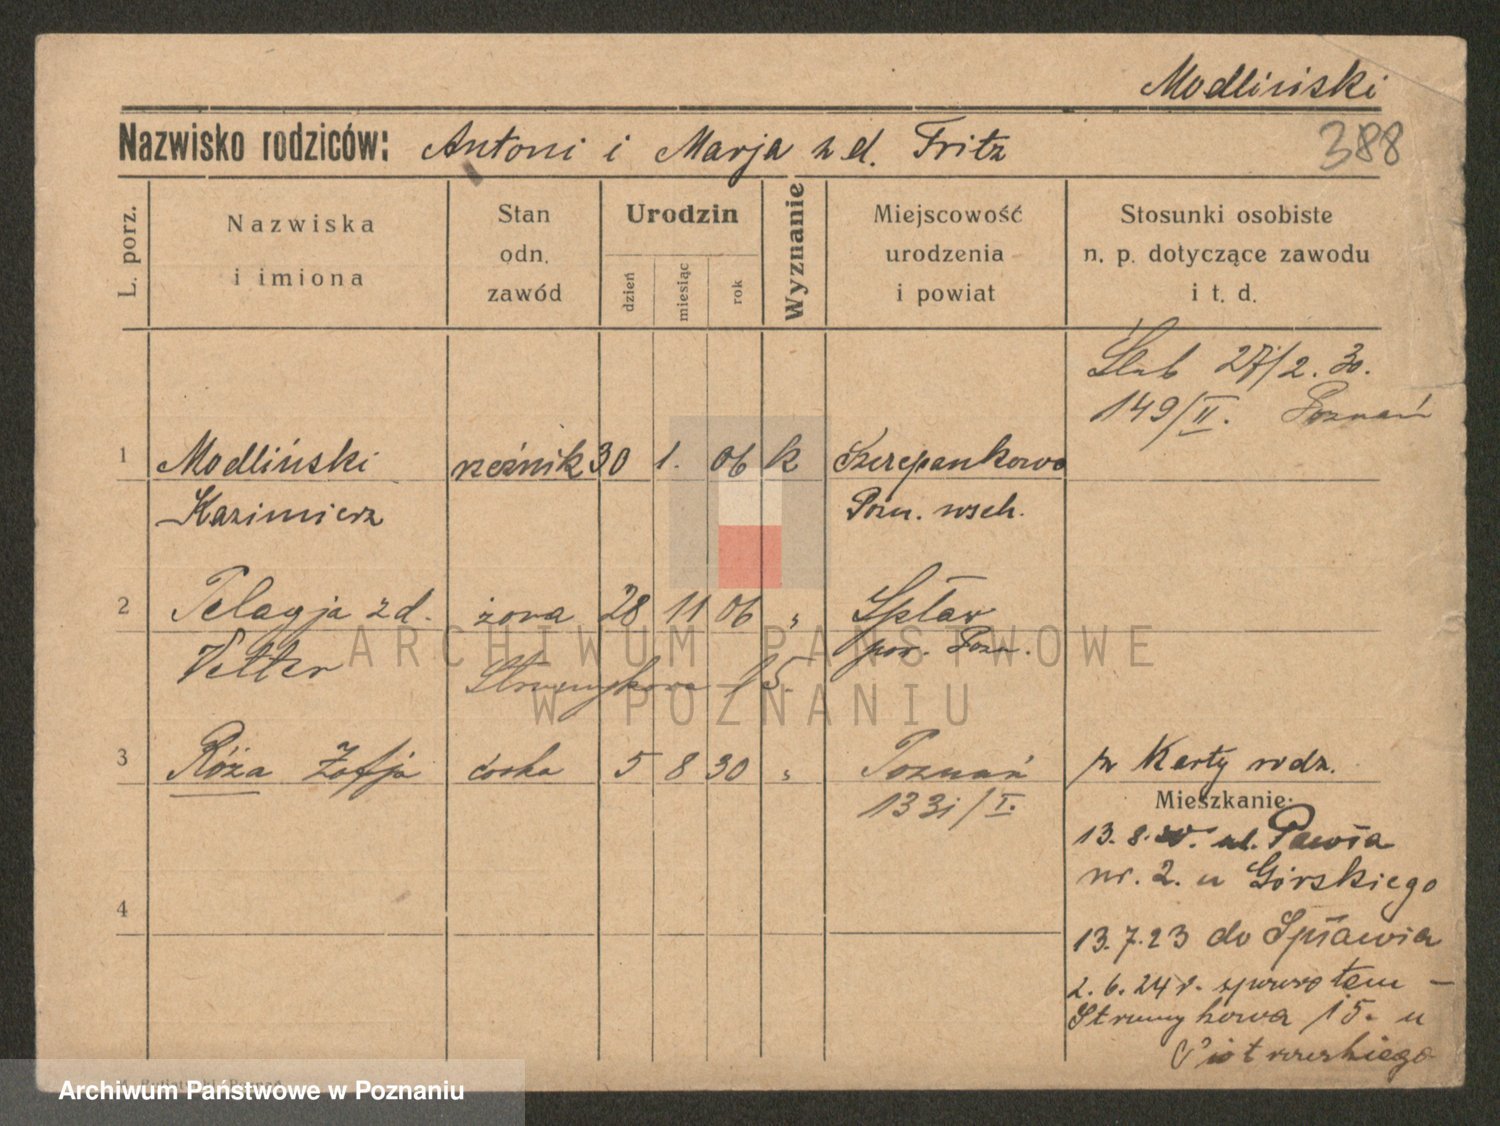 Modliński
Nazwisko rodziców: Antoni i Marja z d. Fritz
388
L. porz.
Nazwiska
i imiona
Stan
odn.
zawód
Urodzin
dzień
miesiąc
rok
Wyznanie
Miejscowość
urodzenia
i powiat
Stosunki osobiste
n. p. dotyczące zawodu
i t. d.
Ślub 27/2. 30.
149/II. Poznań
1 Modliński rzeźnik 30 1. 06 k Szczepankowo
Kazimierz Pozn. wsch.
2 Pelagja z d. żona 28 11 06 " Spław
Vetter pow. Pozn.
Strumykowa 15.
3 Róża Zofja córka 5 8 30 " Poznań
1331/I.
z Karty rodz.
Mieszkanie:
13. 8. ul. Pawia
nr. 2. u Górskiego
4
13. 7. 23 do Spławia
2. 6. 24 r. zpowrotem —
Strumykowa 15. u
ARCHIWUM PAŃSTWOWE
W POZNANIU
Archiwum Państwowe w Poznaniu